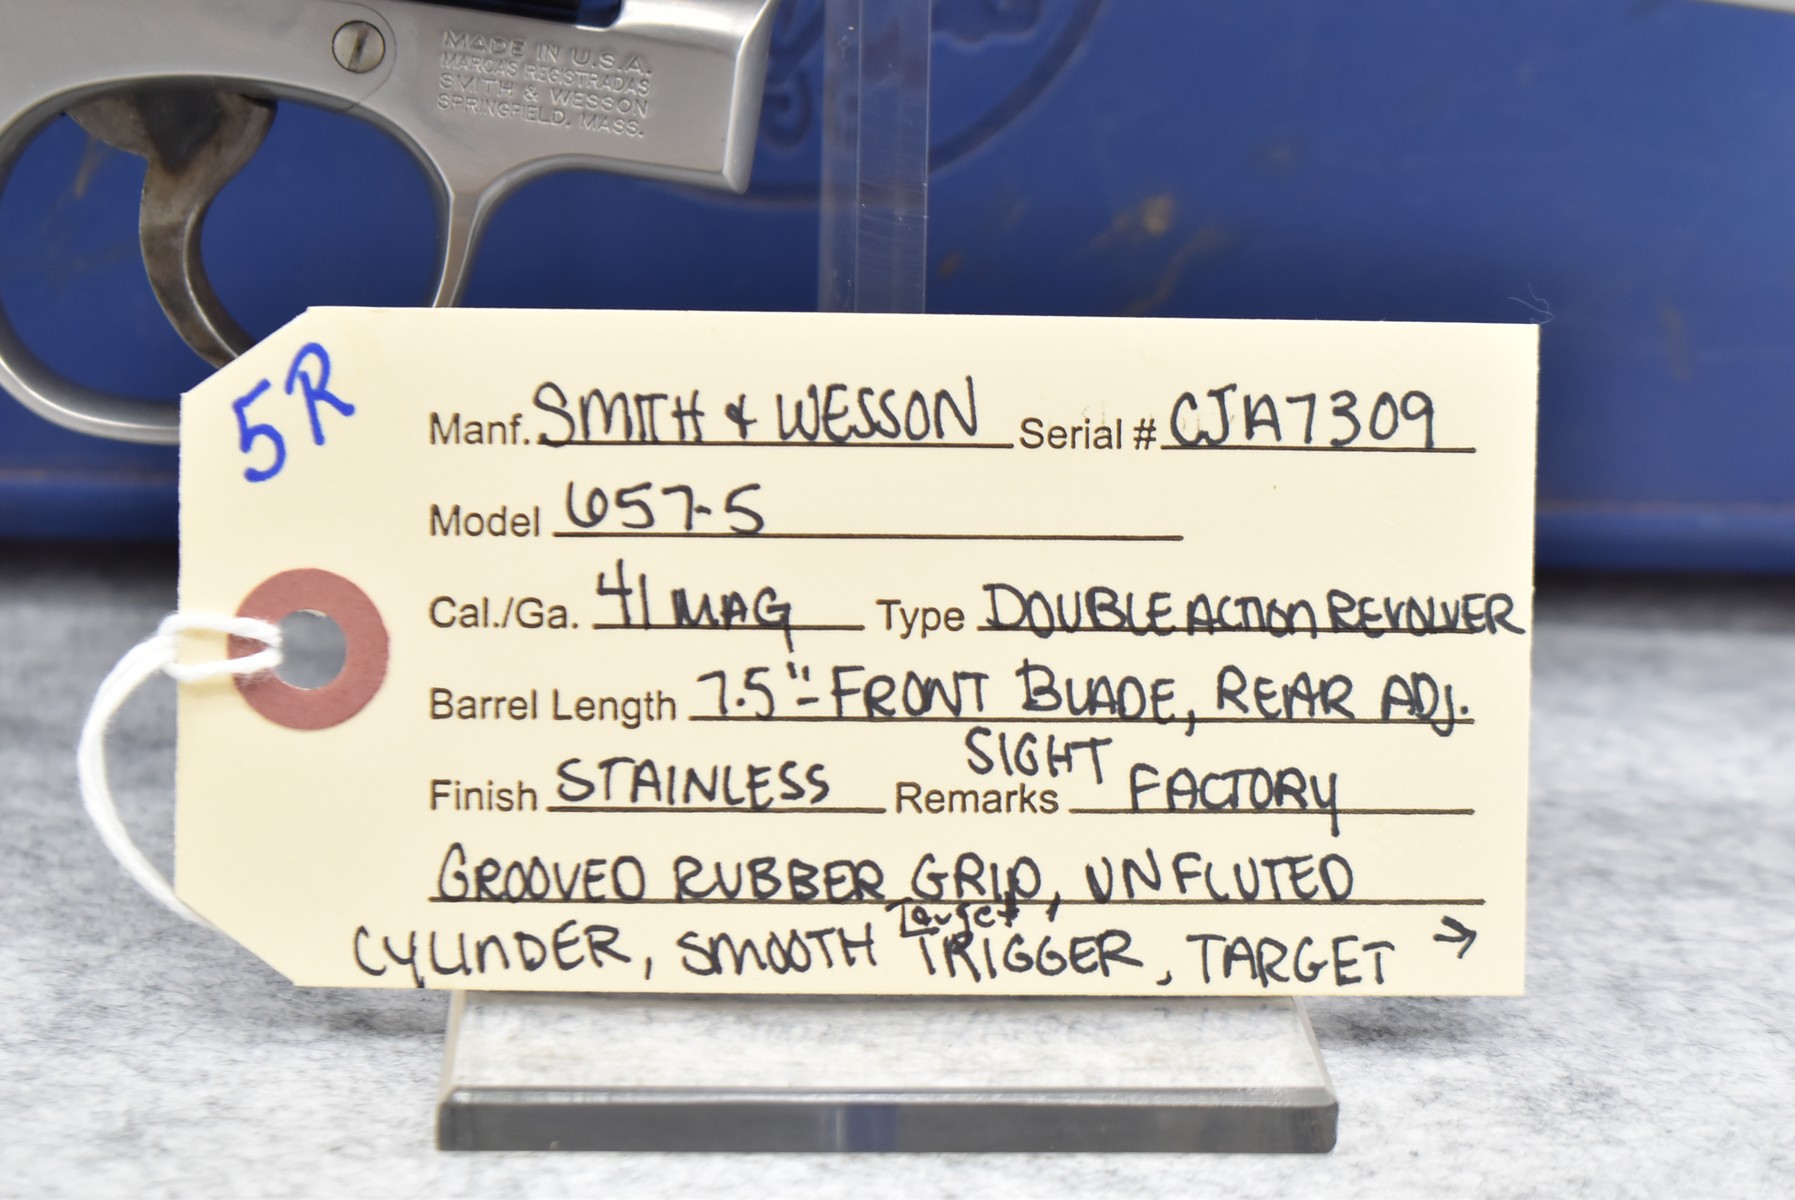 MADE IN U.S.A.
MARCAS REGISTRADAS
SMITH & WESSON
SPRINGFIELD. MASS.
5R
Manf. SMITH & WESSON Serial # CJA7309
Model 657-5
Cal./Ga. 41 MAG Type DOUBLE ACTION REVOLVER
Barrel Length 7.5"- FRONT BLADE, REAR ADJ.
SIGHT
Finish STAINLESS Remarks FACTORY
GROOVED RUBBER GRIP, UNFLUTED
Target
CYLINDER, SMOOTH TRIGGER, TARGET →